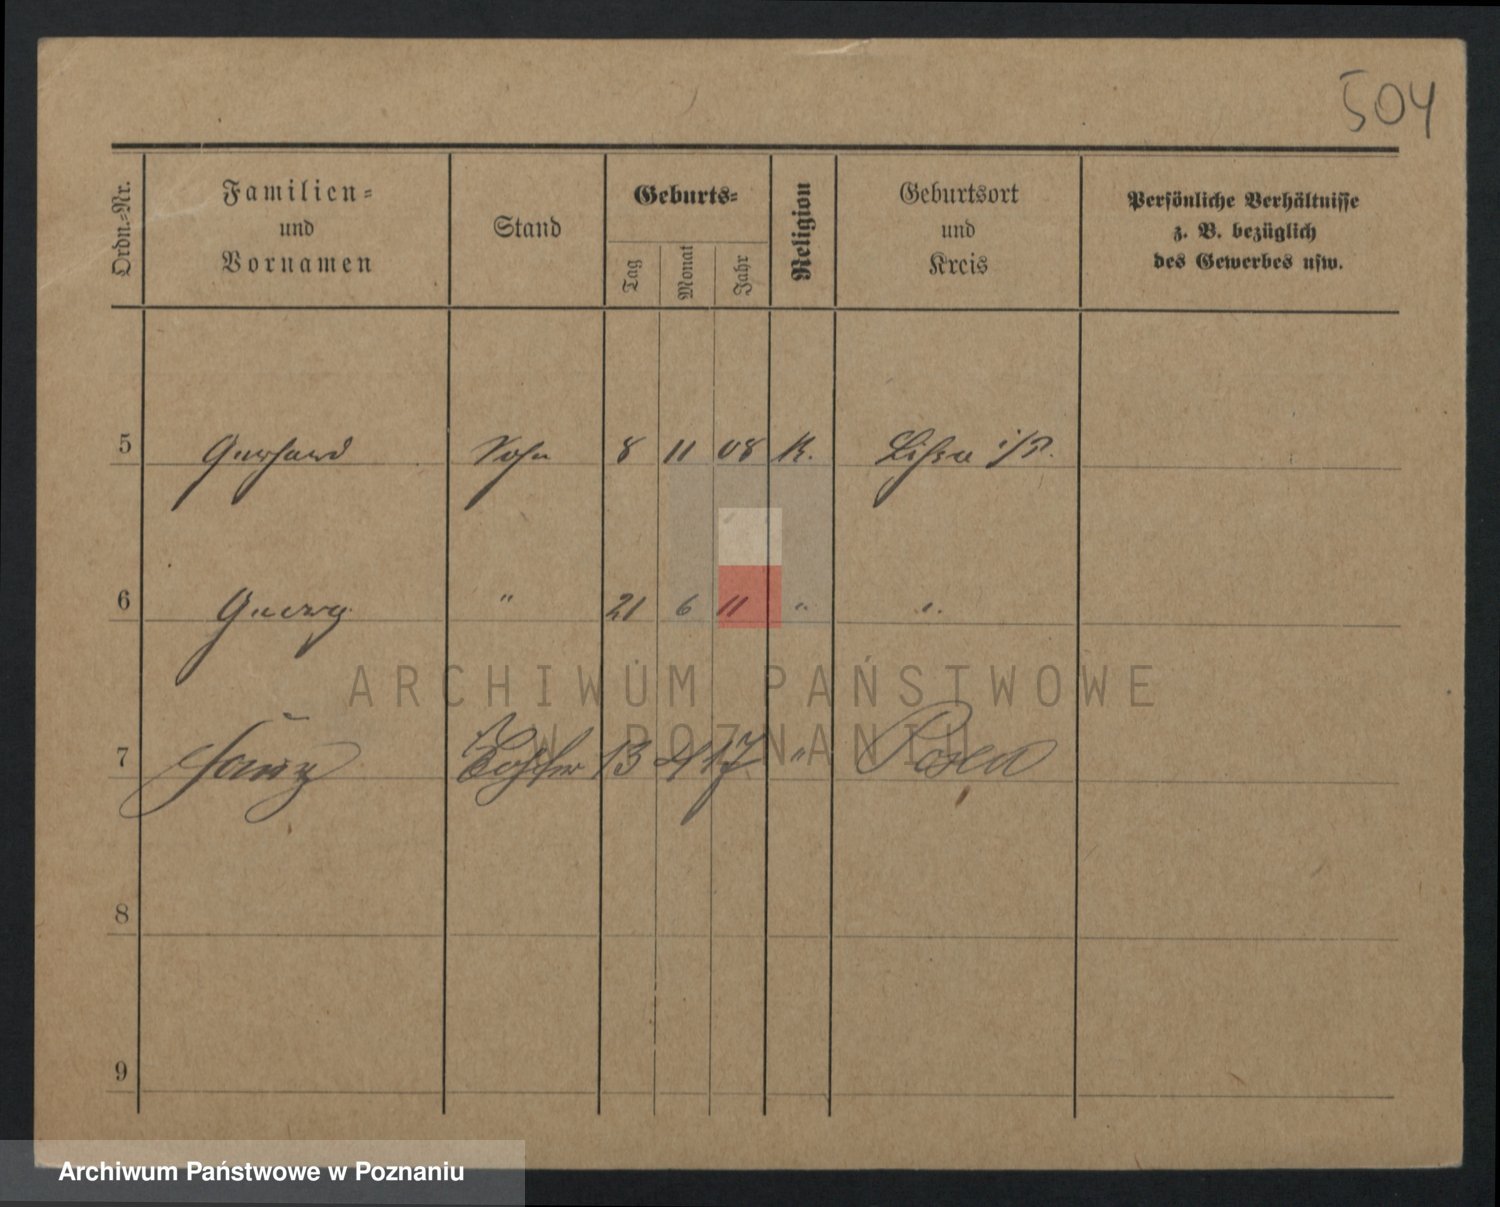 504
Ordn.-Nr.
Familien-
und
Vornamen
Stand
Geburts-
Tag
Monat
Jahr
Religion
Geburtsort
und
Kreis
Persönliche Verhältnisse
z. B. bezüglich
des Gewerbes usw.
5 Gerhard Sohn 8 11 08 K. Lissa i/P.
6 Georg " 21 6 11 " "
7 13 4 17 " Posen
8
9
ARCHIWUM PAŃSTWOWE
W POZNANIU
Archiwum Państwowe w Poznaniu